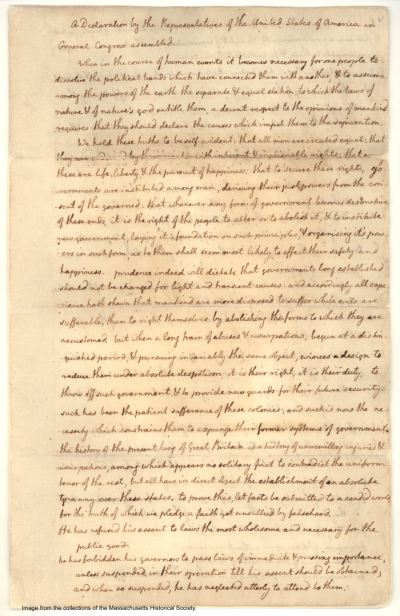 A Declaration by the Representatives of the United States of America in
General Congress assembled.
When in the course of human events it becomes necessary for one people to
dissolve the political bands which have connected them with another, & to assume
among the powers of the earth the separate & equal station, to which the laws of
nature & of nature's god entitle them, a decent respect to the opinions of mankind
requires that they should declare the causes which impel them to the separation.
We hold these truths to be self evident: that all men are created equal; that
they are endowed by their with inherent & inalienable rights; that
these are life, liberty & the pursuit of happiness: that to secure these rights, go
vernments are instituted among men, deriving their just powers from the con
sent of the governed: that whenever any form of government becomes destructive
of these ends, it is the right of the people to alter or to abolish it, & to institute
new government, laying it's foundation on such principles, & organising it's pow
ers in such form, as to them shall seem most likely to effect their safety and
happiness. prudence indeed will dictate that governments long established
should not be changed for light and transient causes: and accordingly all expe
rience hath shewn that mankind are more disposed to suffer while evils are
sufferable, than to right themselves by abolishing the forms to which they are
accustomed. but when a long train of abuses & usurpations, begun at a distin
guished period, & pursuing invariably the same object, evinces a design to
reduce them under absolute despotism, it is their right, it is their duty, to
throw off such government, & to provide new guards for their future security.
such has been the patient sufferance of these colonies; and such is now the ne
cessity which constrains them to expunge their former systems of government.
the history of the present king of Great Britain is a history of unremitting injuries &
usurpations, among which appears no solitary fact to contradict the uniform
tenor of the rest, but all have in direct object the establishment of an absolute
tyranny over these states. to prove this, let facts be submitted to a candid world,
for the truth of which we pledge a faith yet unsullied by falsehood.
He has refused his assent to laws the most wholesome and necessary for the
public good.
he has forbidden his governors to pass laws of immediate & pressing importance,
unless suspended in their operation till his assent should be obtained;
and when so suspended, he has neglected utterly to attend to them.
Image from the collections of the Massachusetts Historical Society